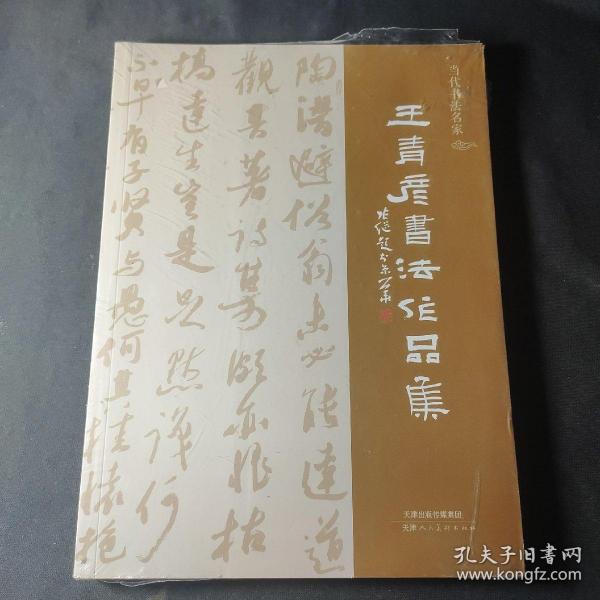 当代书法名家
王青彦書法作品集
张继题
陶潛避俗翁未必能達道
觀其著詩集頗亦恨枯
槁達生豈是足默識
不早有子賢与愚何其挂懷抱
天津出版传媒集团
天津人民美术出版社
孔夫子旧书网
www.kongfz.com